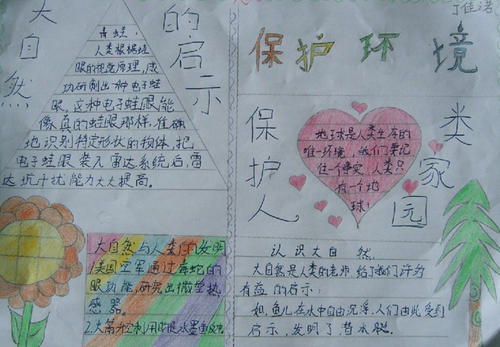 大自然的启示
青蛙:
人类根据蛙
眼的视觉原理,成
功研制出一种电子蛙
眼,这种电子蛙眼能
像真的蛙眼那样,准确
地识别特定形状的物体,把
电子蛙眼装入雷达系统后,雷
达抗干扰能力大大提高。
大自然与人类的发明
1.美国空军通过毒蛇的
眼功能,研究出微型热
感器。
2.人类
丁佳诺
保护环境
保护人类家园
地球是人类生存的
唯一环境,我们要记
住一个事实,人类只
有一个地
球!
认识大自然
大自然是人类的老师给了我们许多
有益的启示:
如,鱼儿在水中自由沉浮,人们由此受到
启示,发明了潜水艇。